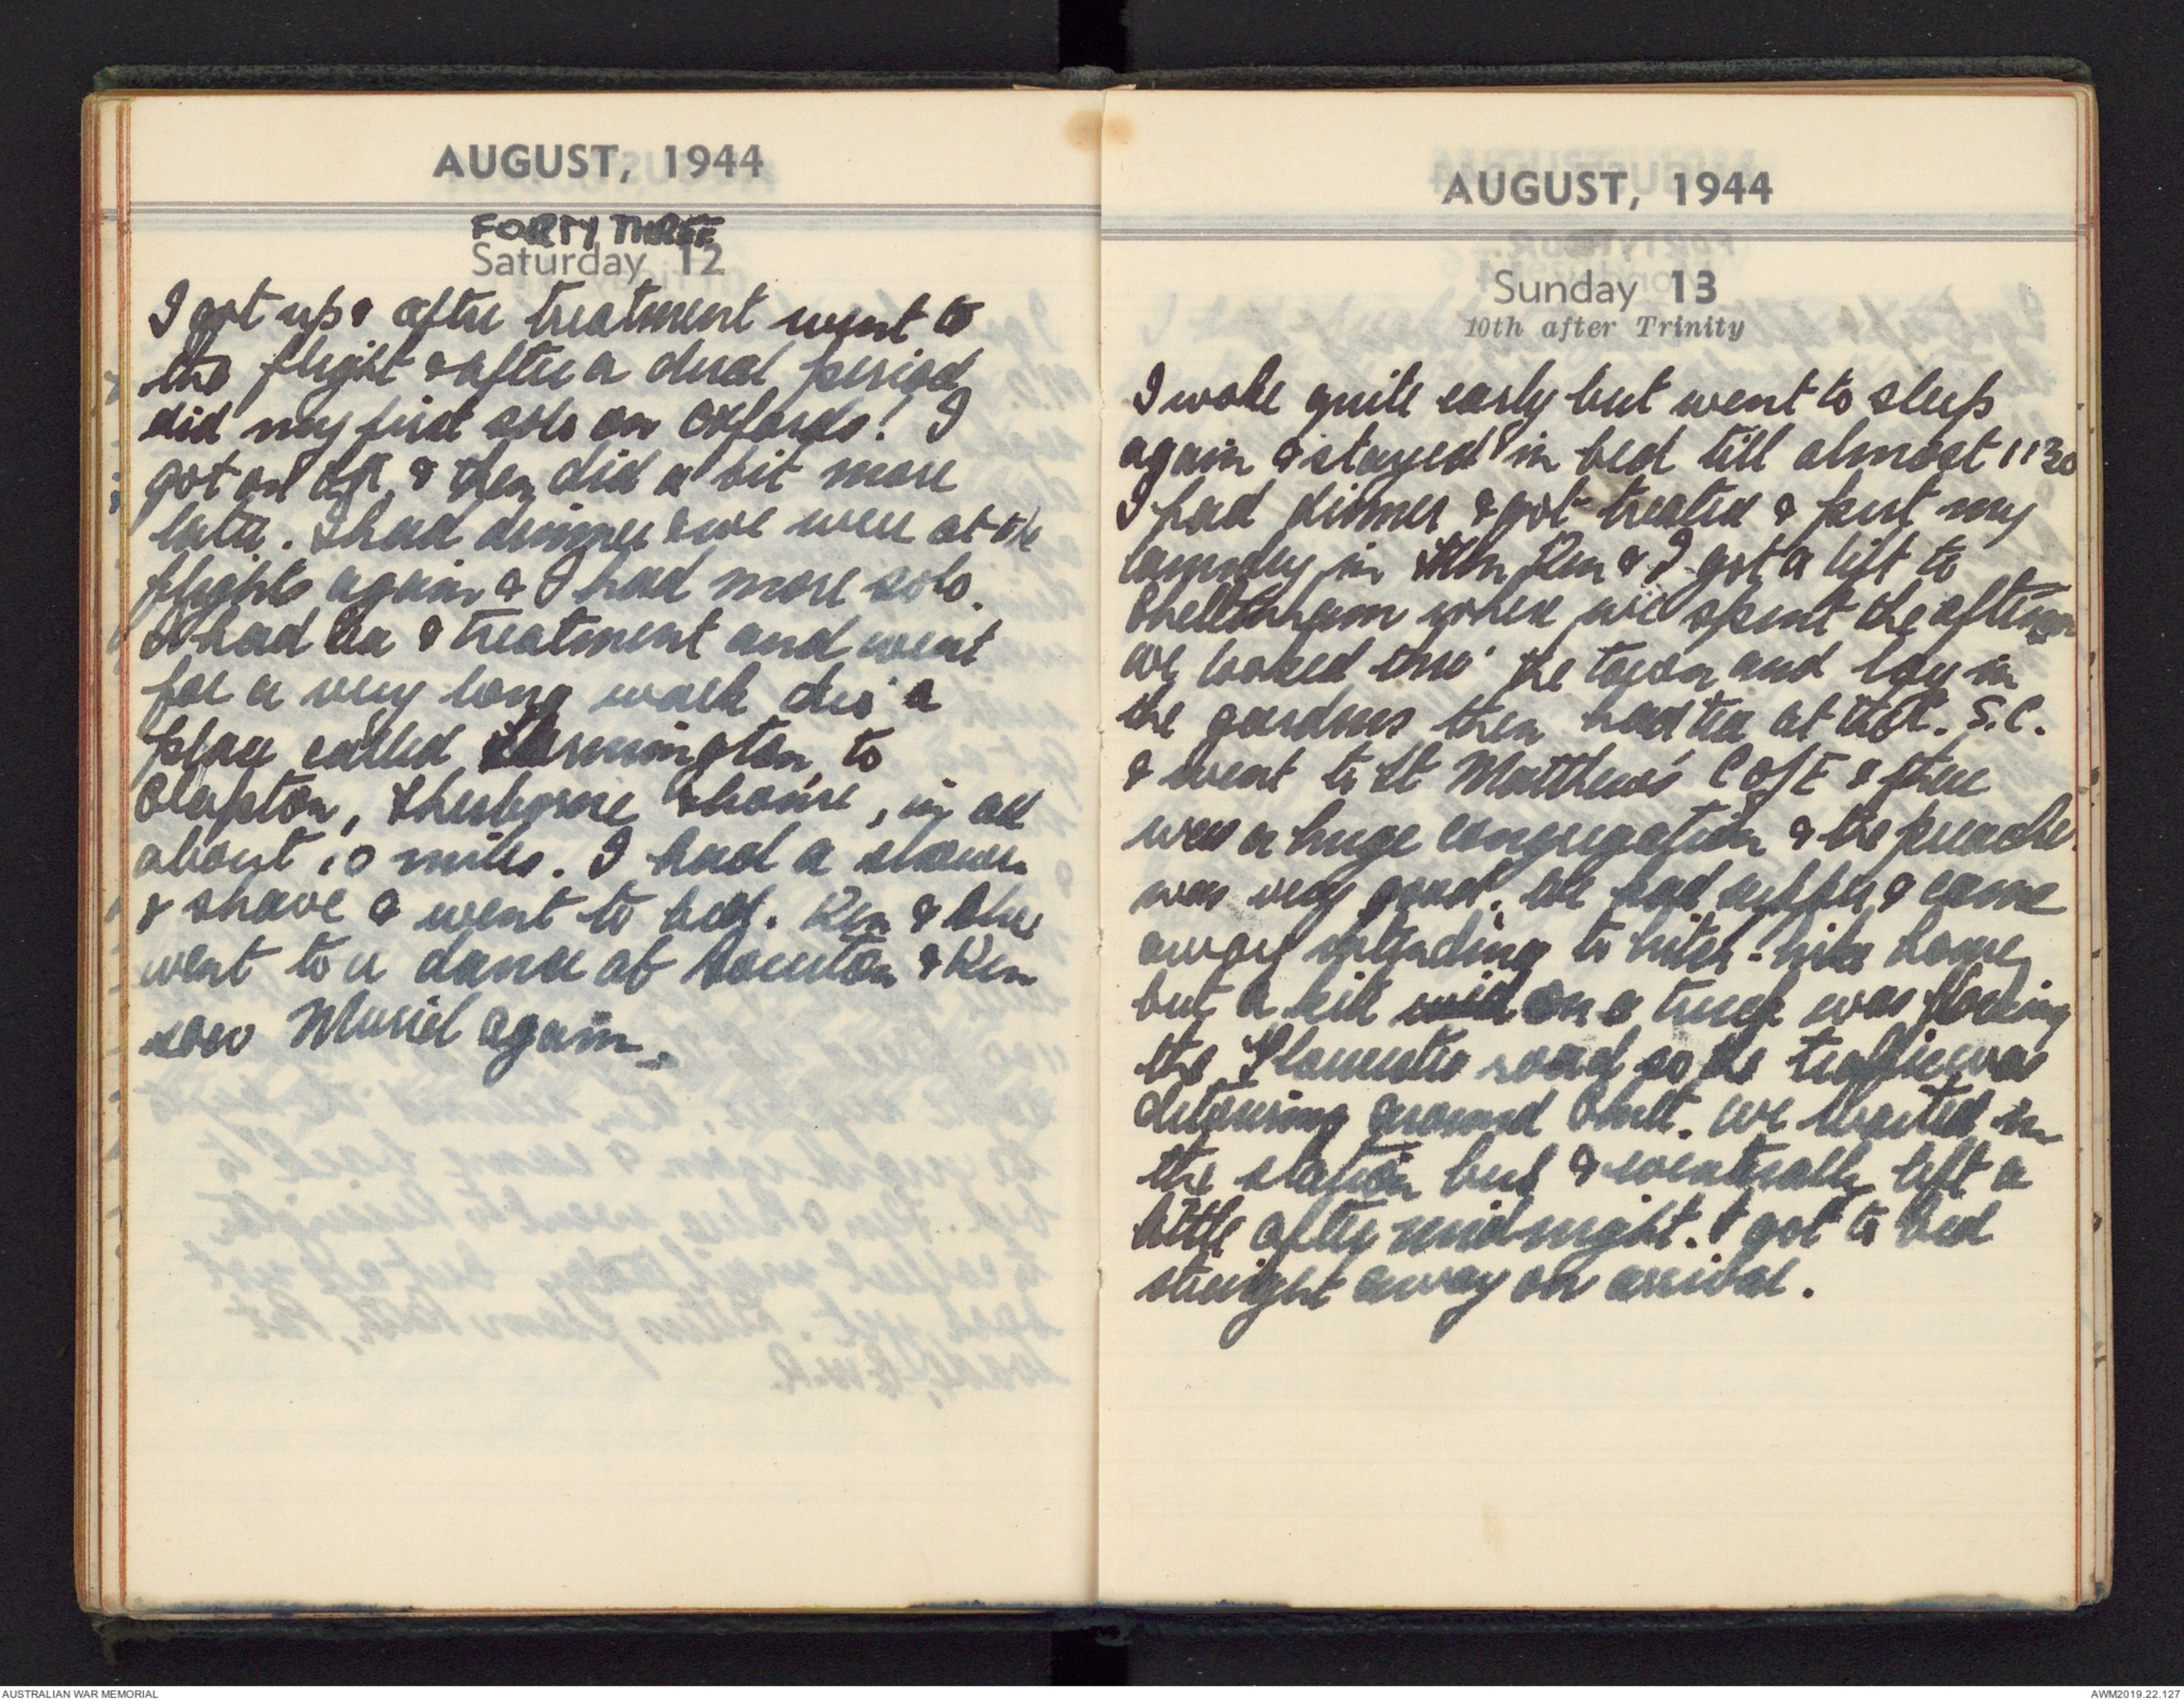 AUGUST, 1944
FORTY THREE
Saturday 12
I got up & after treatment went to
the flight & after a dual period
did my first solo on Oxfords! I
got on & then did a bit more
later. I had dinner & we were at the
flights again & I had more solo.
I had tea & treatment and went
for a very long walk thro' a
place called Farmington, to
Clapton, Sherborne & home, in all
about 10 miles. I had a shower
& shave & went to bed. Ken & Blue
went to a dance at Bourton & Ken
saw Muriel again.
AUGUST, 1944
Sunday 13
10th after Trinity
I woke quite early but went to sleep
again & stayed in bed till almost 1130
I had dinner & got treated & put my
laundry in then Ken & I got a lift to
Cheltenham where we spent the afternoon
we looked thro' the town and lay in
the gardens then had tea at the S.C.
& went to St Matthew's C of E & there
was a huge congregation & the preacher
was very good. We had supper & came
away intending to hitch-hike home
but a kite on a truck was blocking
the Gloucester road so the traffic was
detouring around Chelt. We waited in
the station bus & eventually left a
little after midnight. I got to bed
straight away on arrival.
AUSTRALIAN WAR MEMORIAL
AWM2019.22.127